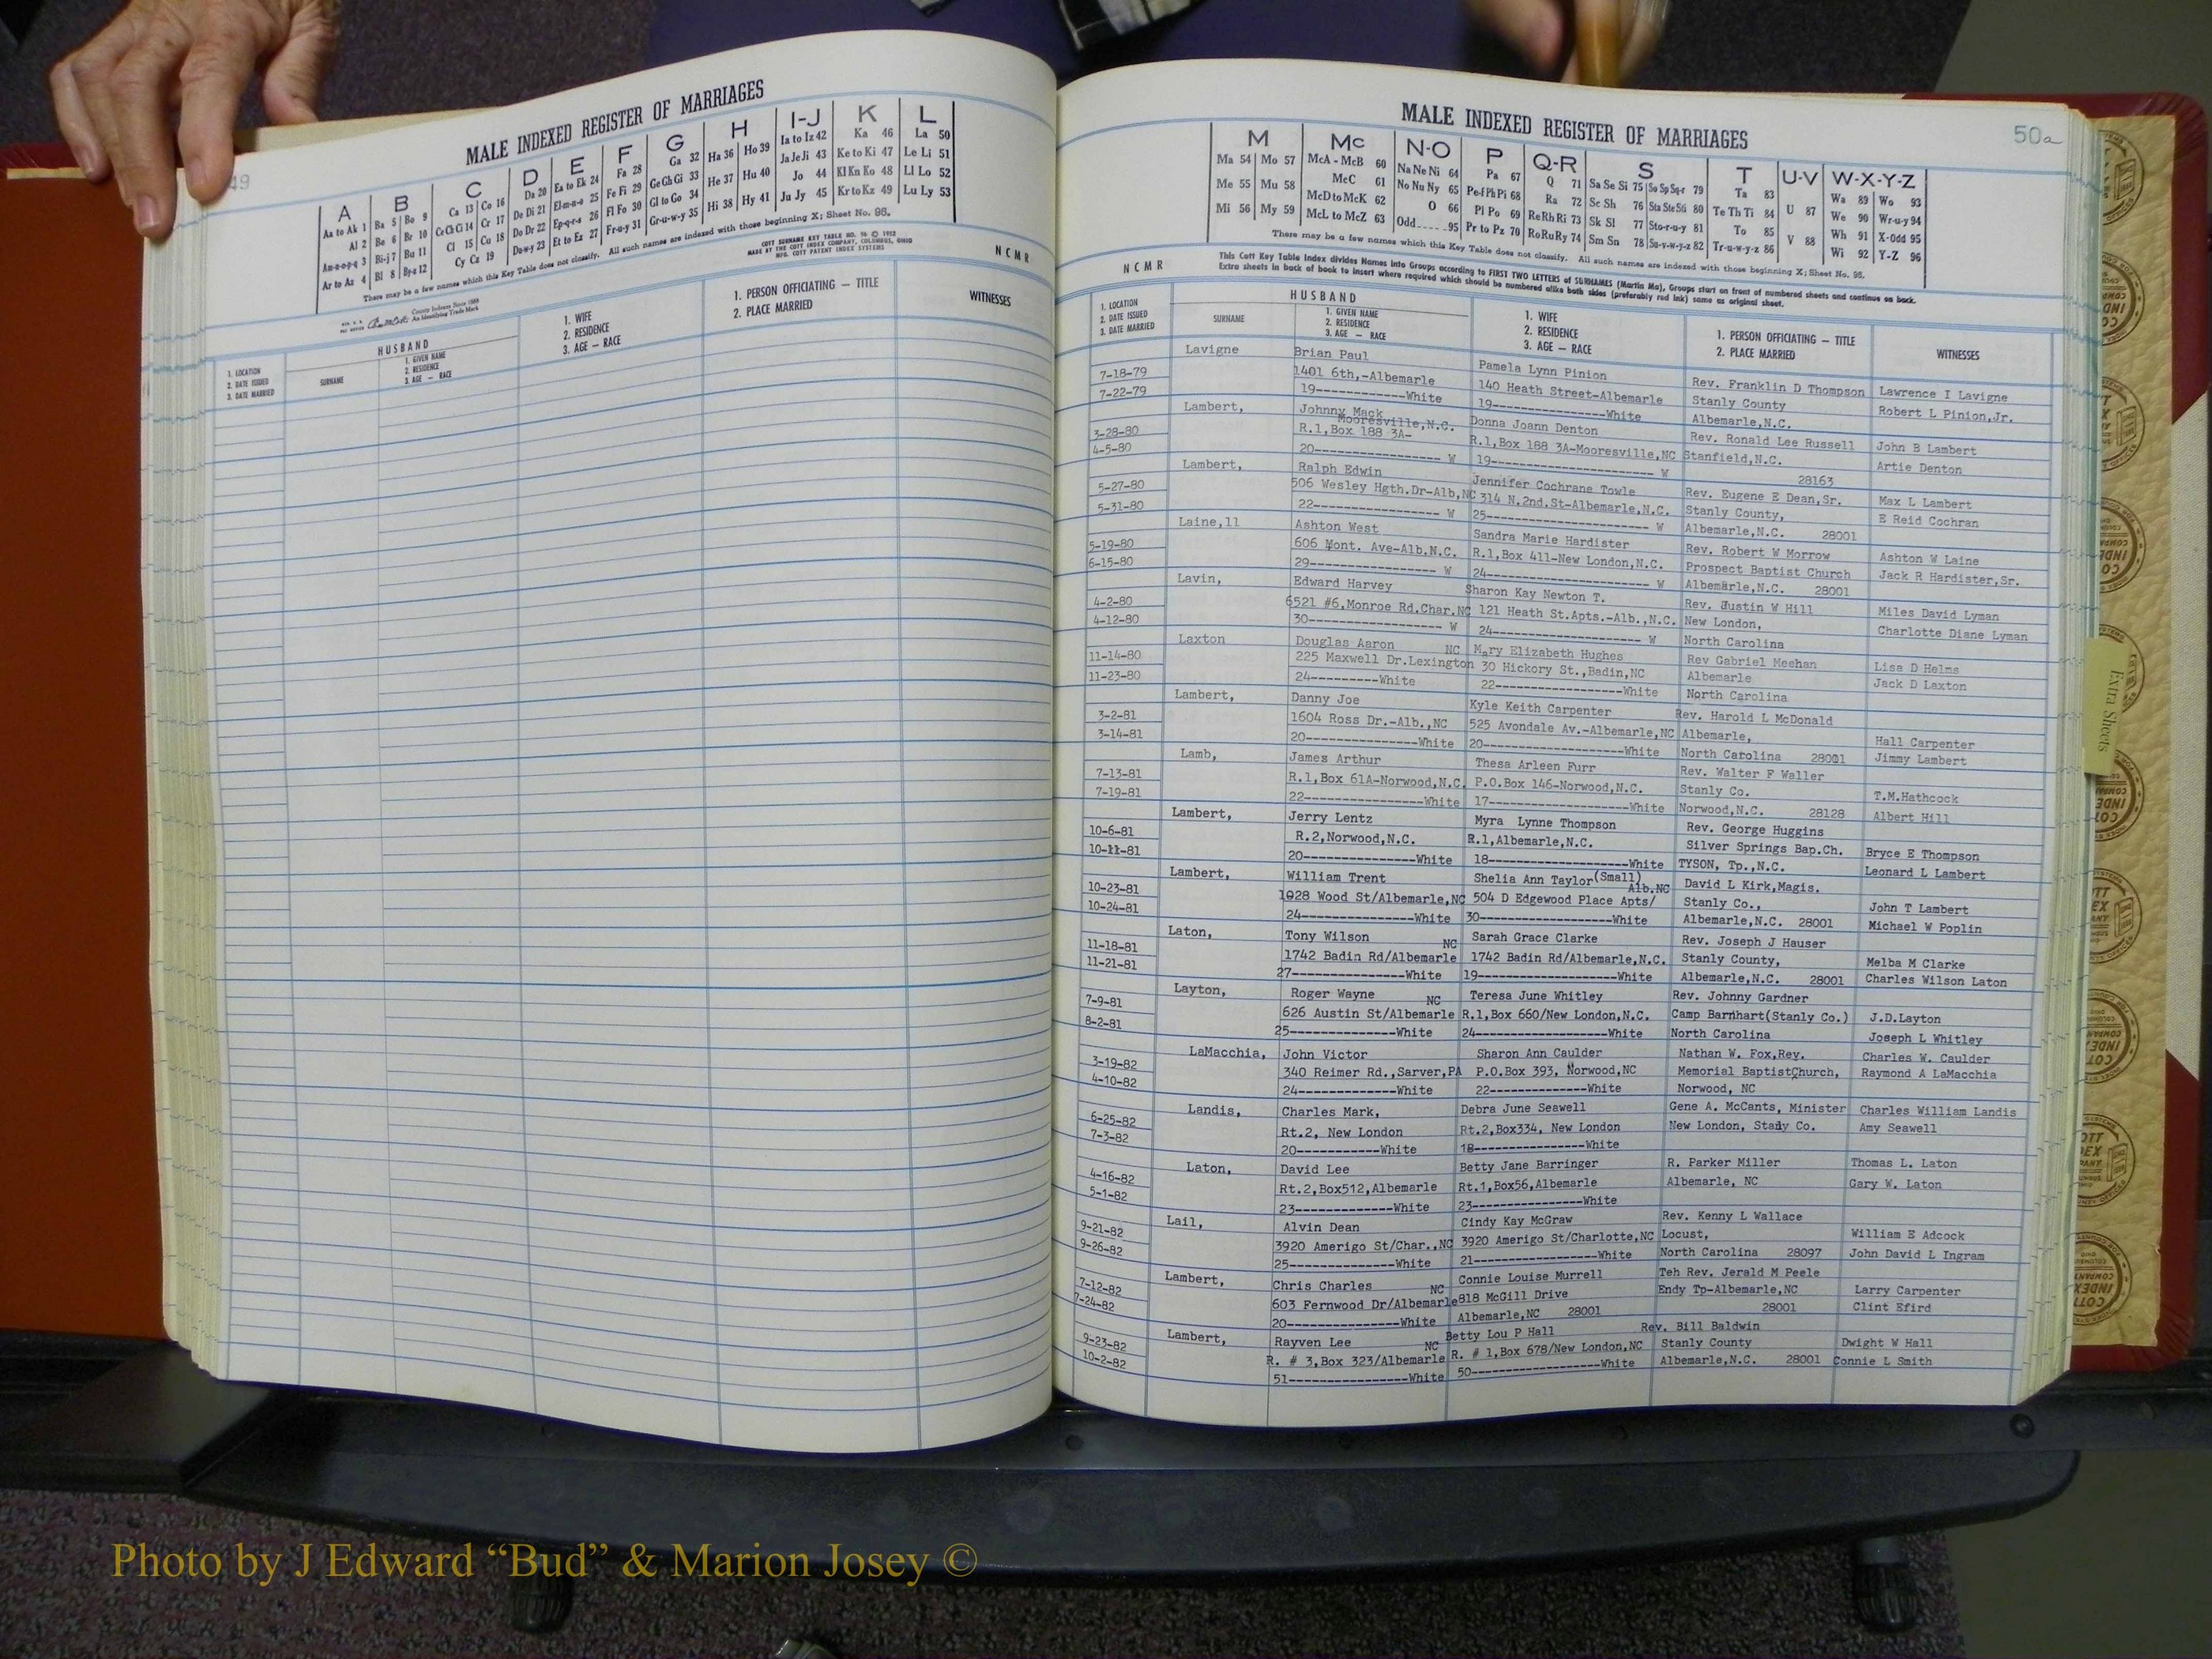 49
MALE INDEXED REGISTER OF MARRIAGES
A B C D E F G H I-J K L
Aa to Ak 1 Ba 5 Bo 9 Ca 13 Co 16 Da 20 Ea to Ek 24 Fa 28 Ga 32 Ha 36 Ho 39 Ia to Iz 42 Ka 46 La 50
Al 2 Be 6 Br 10 Ce Ch Ci 14 Cr 17 De Di 21 El-m-n-o 25 Fe Fi 29 Ge Gh Gi 33 He 37 Hu 40 Ja Je Ji 43 Ke to Ki 47 Le Li 51
Am-n-o-p-q 3 Bi-j 7 Bu 11 Cl 15 Cu 18 Do Dr 22 Ep-q-r-s 26 Fl Fo 30 Gl to Go 34 Hi 38 Hy 41 Jo 44 Kl Kn Ko 48 Ll Lo 52
Ar to Az 4 Bl 8 By-z 12 Cy Cz 19 Du-w-y 23 Et to Ez 27 Fr-u-y 31 Gr-u-w-y 35 Ju Jy 45 Kr to Kz 49 Lu Ly 53
There may be a few names which this Key Table does not classify. All such names are indexed with those beginning X; Sheet No. 95.
County Indexes Since 1888
An Identifying Trade Mark
COTT SURNAME KEY TABLE NO. 96 © 1952
MADE BY THE COTT INDEX COMPANY, COLUMBUS, OHIO
MFG. COTT PATENT INDEX SYSTEMS
NCMR
1. LOCATION
2. DATE ISSUED
3. DATE MARRIED
HUSBAND
SURNAME
1. GIVEN NAME
2. RESIDENCE
3. AGE — RACE
1. WIFE
2. RESIDENCE
3. AGE — RACE
1. PERSON OFFICIATING — TITLE
2. PLACE MARRIED
WITNESSES
50a
MALE INDEXED REGISTER OF MARRIAGES
M Mc N-O P Q-R S T U-V W-X-Y-Z
Ma 54 Mo 57 McA - McB 60 Na Ne Ni 64 Pa 67 Q 71 Sa Se Si 75 So Sp Sq-r 79 Ta 83 U 87 Wa 89 Wo 93
Me 55 Mu 58 McC 61 No Nu Ny 65 Pe-f Ph Pi 68 Ra 72 Sc Sh 76 Sta Ste Sti 80 Te Th Ti 84 V 88 We 90 Wr-u-y 94
Mi 56 My 59 McD to McK 62 O 66 Pl Po 69 Re Rh Ri 73 Sk Sl 77 Sto-r-u-y 81 To 85 Wh 91 X-Odd 95
McL to McZ 63 Odd 95 Pr to Pz 70 Ro Ru Ry 74 Sm Sn 78 Su-v-w-y-z 82 Tr-u-w-y-z 86 Wi 92 Y-Z 96
There may be a few names which this Key Table does not classify. All such names are indexed with those beginning X; Sheet No. 95.
This Cott Key Table Index divides Names into Groups according to FIRST TWO LETTERS of SURNAMES (Martin Ma), Groups start on front of numbered sheets and continue on back.
Extra sheets in back of book to insert where required which should be numbered alike both sides (preferably red ink) same as original sheet.
NCMR
1. LOCATION
2. DATE ISSUED
3. DATE MARRIED
HUSBAND
SURNAME
1. GIVEN NAME
2. RESIDENCE
3. AGE — RACE
1. WIFE
2. RESIDENCE
3. AGE — RACE
1. PERSON OFFICIATING — TITLE
2. PLACE MARRIED
WITNESSES
Lavigne Brian Paul Pamela Lynn Pinion Rev. Franklin D Thompson Lawrence I Lavigne
7-18-79 1401 6th,-Albemarle 140 Heath Street-Albemarle Stanly County Robert L Pinion,Jr.
7-22-79 19----------White 19---------------White Albemarle,N.C.
Lambert, Johnny Mack Donna Joann Denton Rev. Ronald Lee Russell John B Lambert
Mooresville,N.C.
3-28-80 R.1,Box 188 3A- R.1,Box 188 3A-Mooresville,NC Stanfield,N.C. Artie Denton
4-5-80 20---------------- W 19--------------------- W 28163
Lambert, Ralph Edwin Jennifer Cochrane Towle Rev. Eugene E Dean,Sr. Max L Lambert
5-27-80 506 Wesley Hgth.Dr-Alb,NC 314 N.2nd.St-Albemarle,N.C. Stanly County, E Reid Cochran
5-31-80 22---------------- W 25--------------------- W Albemarle,N.C. 28001
Laine,11 Ashton West Sandra Marie Hardister Rev. Robert W Morrow Ashton W Laine
5-19-80 606 Mont. Ave-Alb,N.C. R.1,Box 411-New London,N.C. Prospect Baptist Church Jack R Hardister,Sr.
6-15-80 29------------------ W 24--------------------- W Albemarle,N.C. 28001
Lavin, Edward Harvey Sharon Kay Newton T. Rev. Justin W Hill Miles David Lyman
4-2-80 6521 #6,Monroe Rd.Char,NC 121 Heath St.Apts.-Alb.,N.C. New London, Charlotte Diane Lyman
4-12-80 30----------------- W 24------------------- W North Carolina
Laxton Douglas Aaron NC Mary Elizabeth Hughes Rev Gabriel Meehan Lisa D Helms
11-14-80 225 Maxwell Dr.Lexington 30 Hickory St.,Badin,NC Albemarle Jack D Laxton
11-23-80 24---------White 22------------------White North Carolina
Lambert, Danny Joe Kyle Keith Carpenter Rev. Harold L McDonald
3-2-81 1604 Ross Dr.-Alb.,NC 525 Avondale Av.-Albemarle,NC Albemarle, Hall Carpenter
3-14-81 20--------------White 20------------------White North Carolina 28001 Jimmy Lambert
Lamb, James Arthur Thesa Arleen Furr Rev. Walter F Waller
7-13-81 R.1,Box 61A-Norwood,N.C. P.O.Box 146-Norwood,N.C. Stanly Co. T.M.Hathcock
7-19-81 22---------------White 17------------------White Norwood,N.C. 28128 Albert Hill
Lambert, Jerry Lentz Myra Lynne Thompson Rev. George Huggins
10-6-81 R.2,Norwood,N.C. R.1,Albemarle,N.C. Silver Springs Bap.Ch. Bryce E Thompson
10-11-81 20--------------White 18------------------White TYSON, Tp.,N.C. Leonard L Lambert
Lambert, William Trent Shelia Ann Taylor (Small) David L Kirk,Magis.
Alb.NC
10-23-81 1028 Wood St/Albemarle,NC 504 D Edgewood Place Apts/ Stanly Co., John T Lambert
10-24-81 24--------------White 30-----------------White Albemarle,N.C. 28001 Michael W Poplin
Laton, Tony Wilson NC Sarah Grace Clarke Rev. Joseph J Hauser
11-18-81 1742 Badin Rd/Albemarle 1742 Badin Rd/Albemarle,N.C. Stanly County, Melba M Clarke
11-21-81 27--------------White 19------------------White Albemarle,N.C. 28001 Charles Wilson Laton
Layton, Roger Wayne NC Teresa June Whitley Rev. Johnny Gardner
7-9-81 626 Austin St/Albemarle R.1,Box 660/New London,N.C. Camp Barnhart(Stanly Co.) J.D.Layton
8-2-81 25-------------White 24-----------------White North Carolina Joseph L Whitley
LaMacchia, John Victor Sharon Ann Caulder Nathan W. Fox,Rev. Charles W. Caulder
3-19-82 340 Reimer Rd.,Sarver,PA P.O.Box 393, Norwood,NC Memorial BaptistChurch, Raymond A LaMacchia
4-10-82 24------------White 22--------------White Norwood, NC
Landis, Charles Mark, Debra June Seawell Gene A. McCants, Minister Charles William Landis
6-25-82 Rt.2, New London Rt.2,Box334, New London New London, Stanly Co. Amy Seawell
7-3-82 20-----------White 18--------------White
Laton, David Lee Betty Jane Barringer R. Parker Miller Thomas L. Laton
4-16-82 Rt.2,Box512,Albemarle Rt.1,Box56,Albemarle Albemarle, NC Gary W. Laton
5-1-82 23-------------White 23--------------White
Lail, Alvin Dean Cindy Kay McGraw Rev. Kenny L Wallace
9-21-82 3920 Amerigo St/Char.,NC 3920 Amerigo St/Charlotte,NC Locust, William E Adcock
9-26-82 25-------------White 21-----------------White North Carolina 28097 John David L Ingram
Lambert, Chris Charles NC Connie Louise Murrell Teh Rev. Jerald M Peele
7-12-82 603 Fernwood Dr/Albemarle 818 McGill Drive Endy Tp-Albemarle,NC Larry Carpenter
7-24-82 20---------------White Albemarle,NC 28001 28001 Clint Efird
Lambert, Rayven Lee NC Betty Lou P Hall Rev. Bill Baldwin
9-23-82 R. # 3,Box 323/Albemarle R. # 1,Box 678/New London,NC Stanly County Dwight W Hall
10-2-82 51-----------------White 50------------------White Albemarle,N.C. 28001 Connie L Smith
Extra Sheets
Photo by J Edward “Bud” & Marion Josey ©